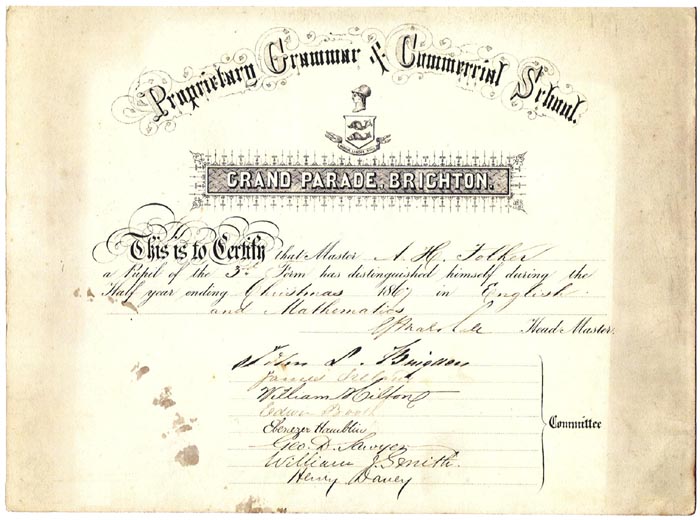 Proprietary Grammar & Commercial School.
GRAND PARADE, BRIGHTON.
This is to Certify that Master A. H. Tolher
a Pupil of the 3rd Form has distinguished himself during the
Half year ending Christmas 1867 in English
and Mathematics
Head Master.
John L. Brigden
James Ireland
William Hilton
Edwin Booth
Ebenezer Hamblin
Geo. D. Sawyer
William J. Smith.
Henry Davey
Committee